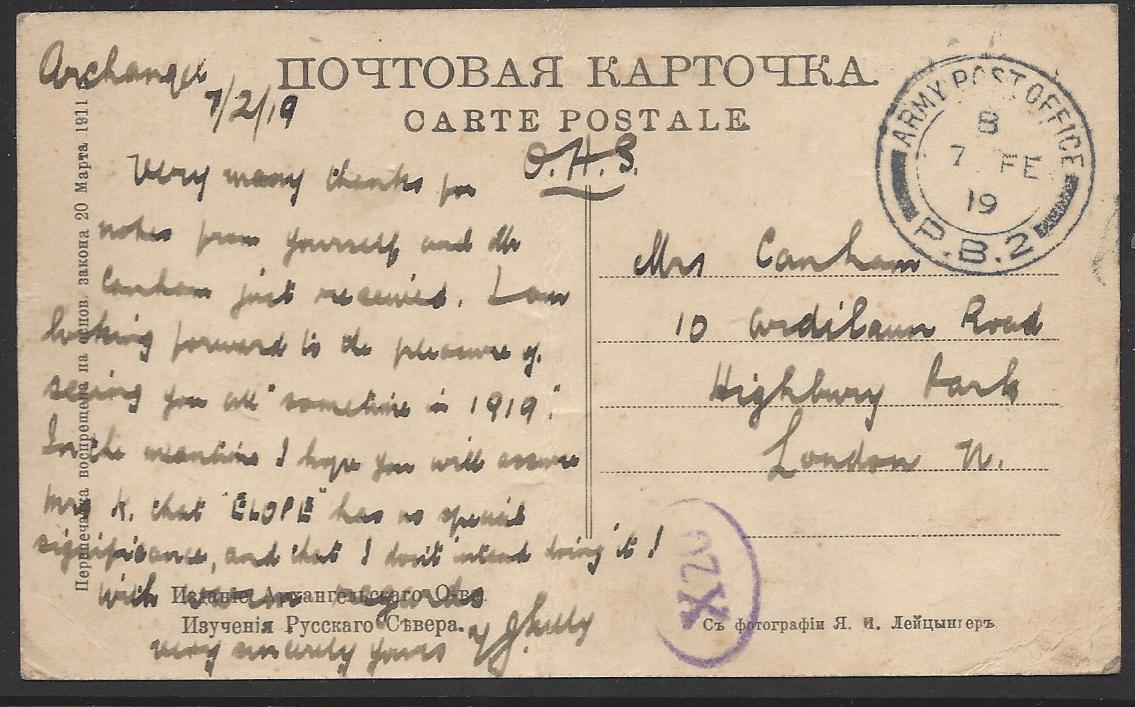 ПОЧТОВАЯ КАРТОЧКА.
CARTE POSTALE
Archangel
7/2/19
Very many thanks for
notes from yourself and Mr
Canham just received. I am
looking forward to the pleasure of
seeing you all "sometime in 1919".
In the meantime I hope you will assure
Mrs K. that "ELOPE" has no special
significance, and that I don't intend doing it!
with warm regards
very sincerely yours
O.H.S.
Mrs Canham
10 Ardilaun Road
Highbury Park
London N.
ARMY POST OFFICE
B
7 FE
19
P.B.2
Перепечатка воспрещена на основ. закона 20 Марта 1911
Изданіе Архангельскаго О-ва
Изученія Русскаго Сѣвера.
Съ фотографіи Я. И. Лейцингеръ